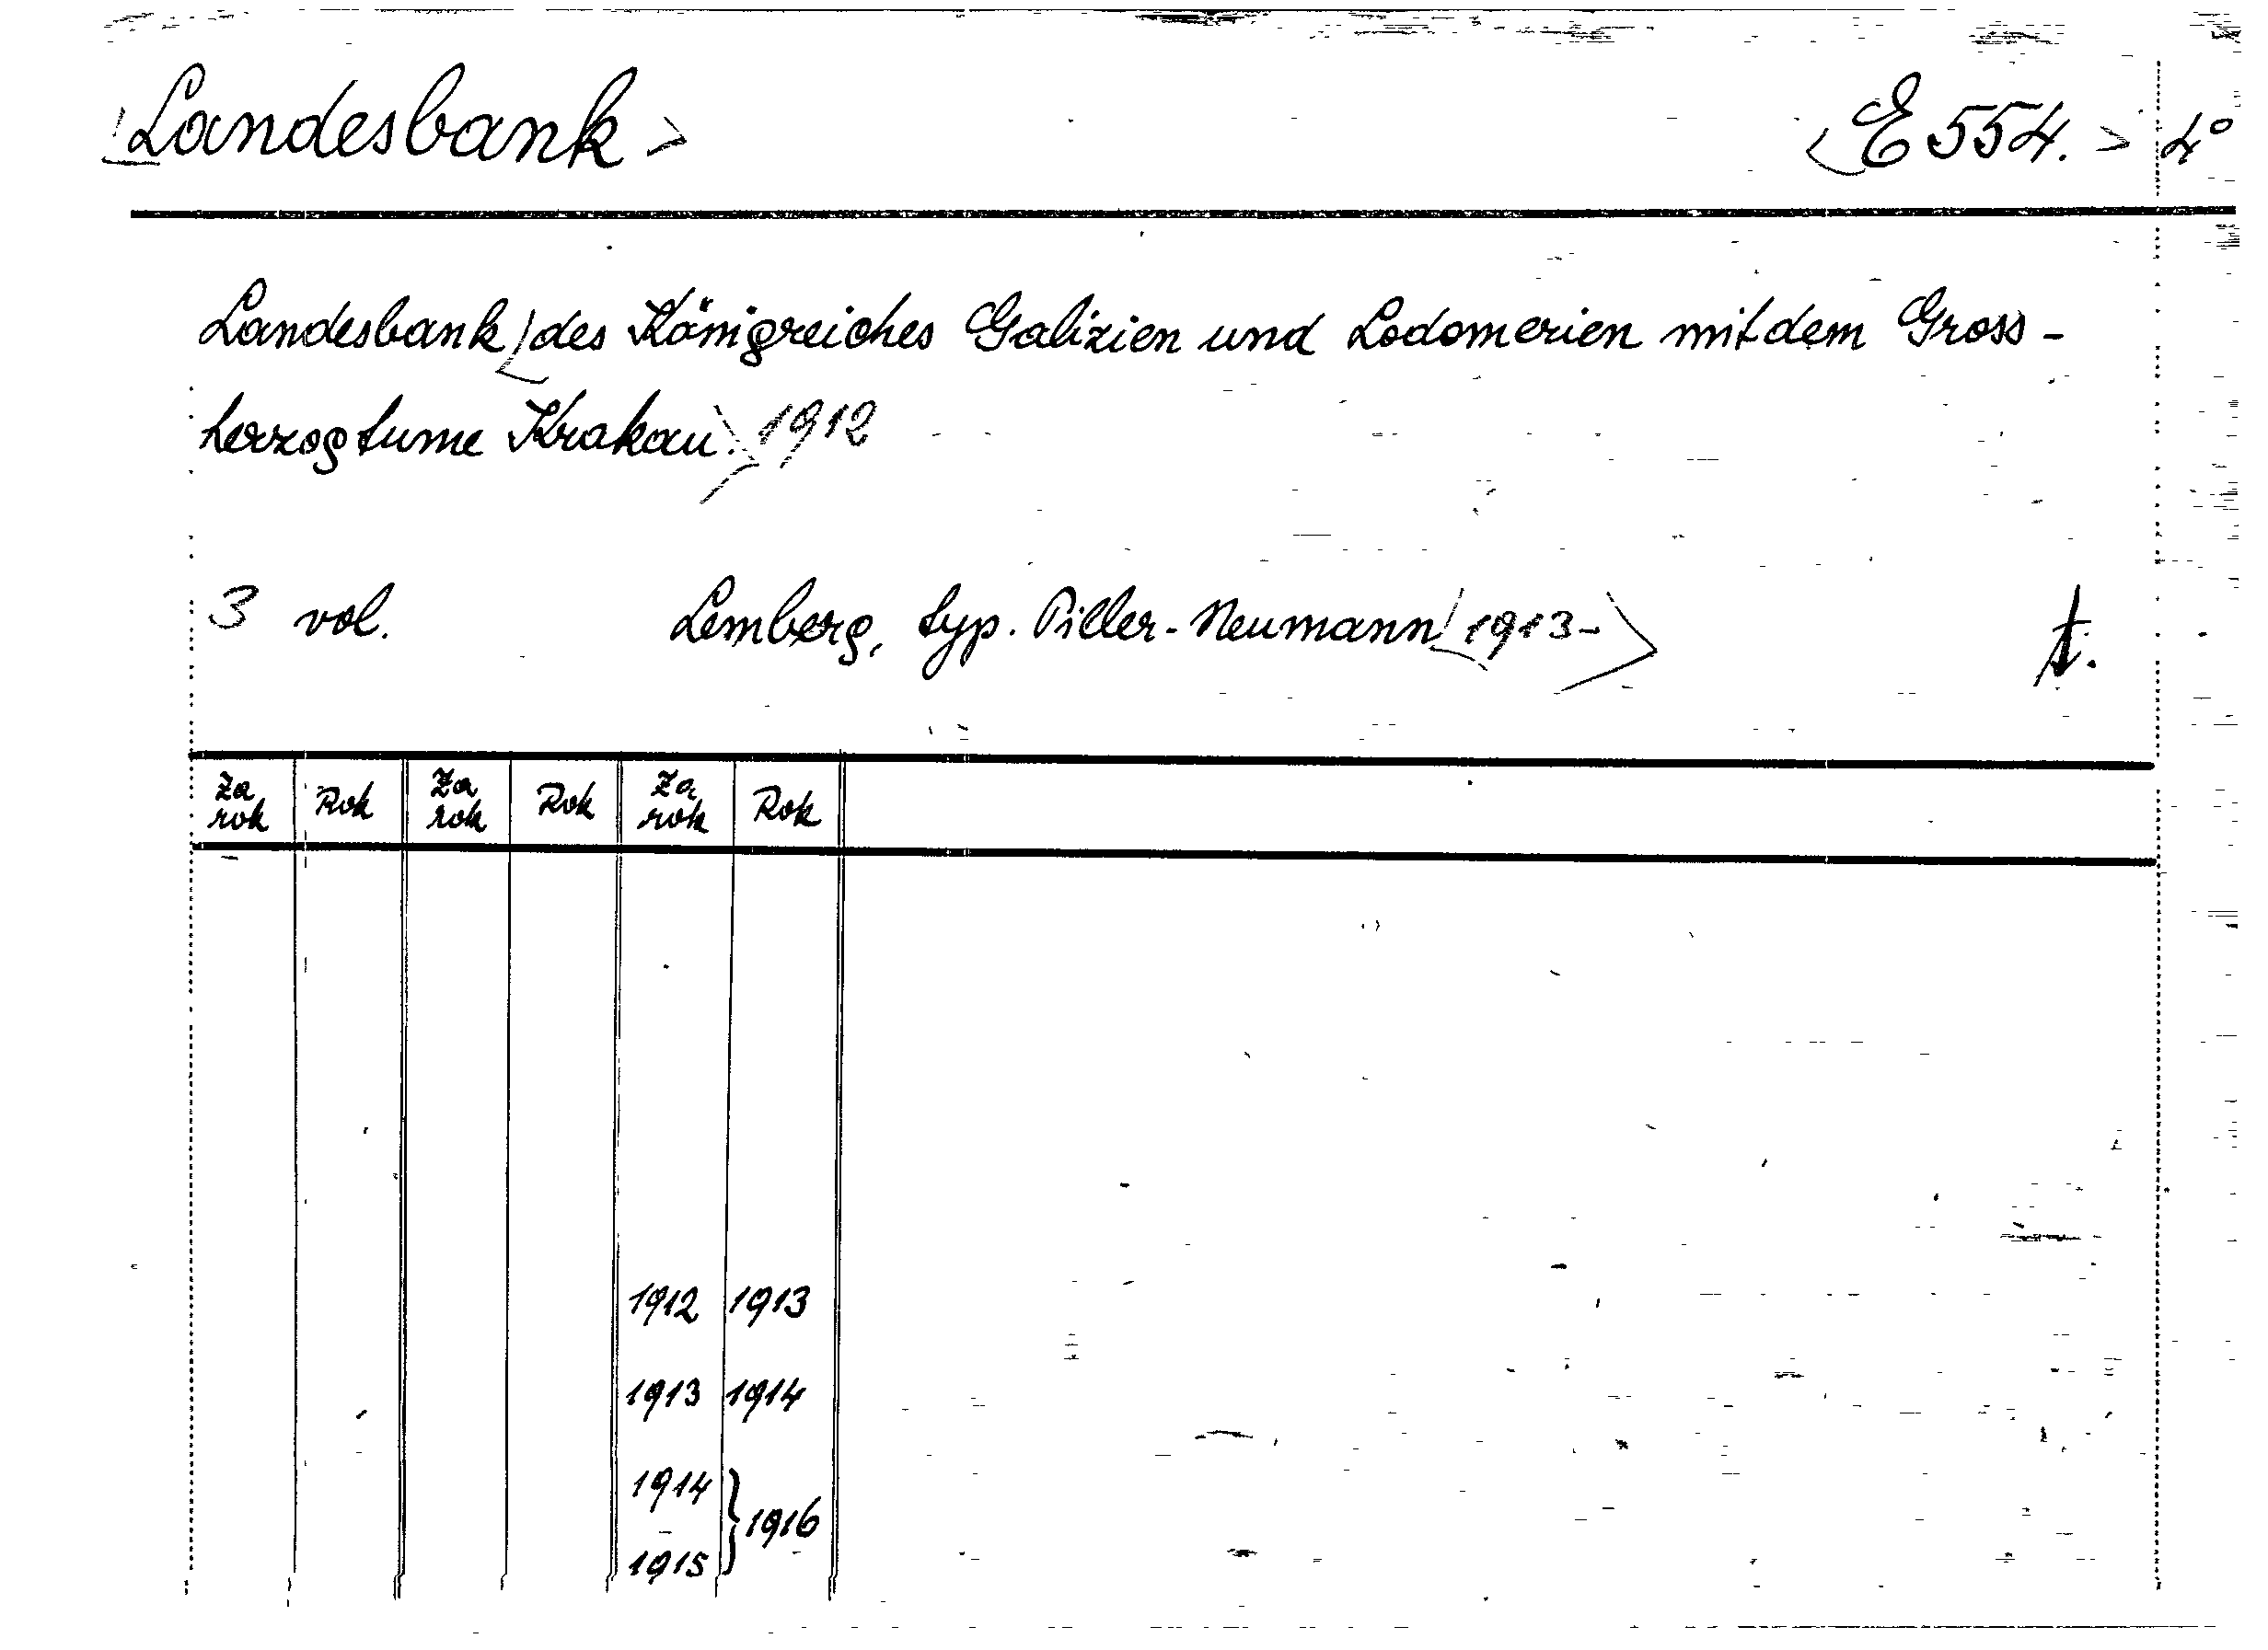 <Landesbank> <E 554.> 4°
Landesbank <des Königreiches Galizien und Lodomerien mit dem Gross-
herzogtume Krakau.> 1912
3 vol. Lemberg, typ. Piller-Neumann <1913->
Za rok Rok Za rok Rok Za rok Rok
1912 1913
1913 1914
1914
} 1916
1915